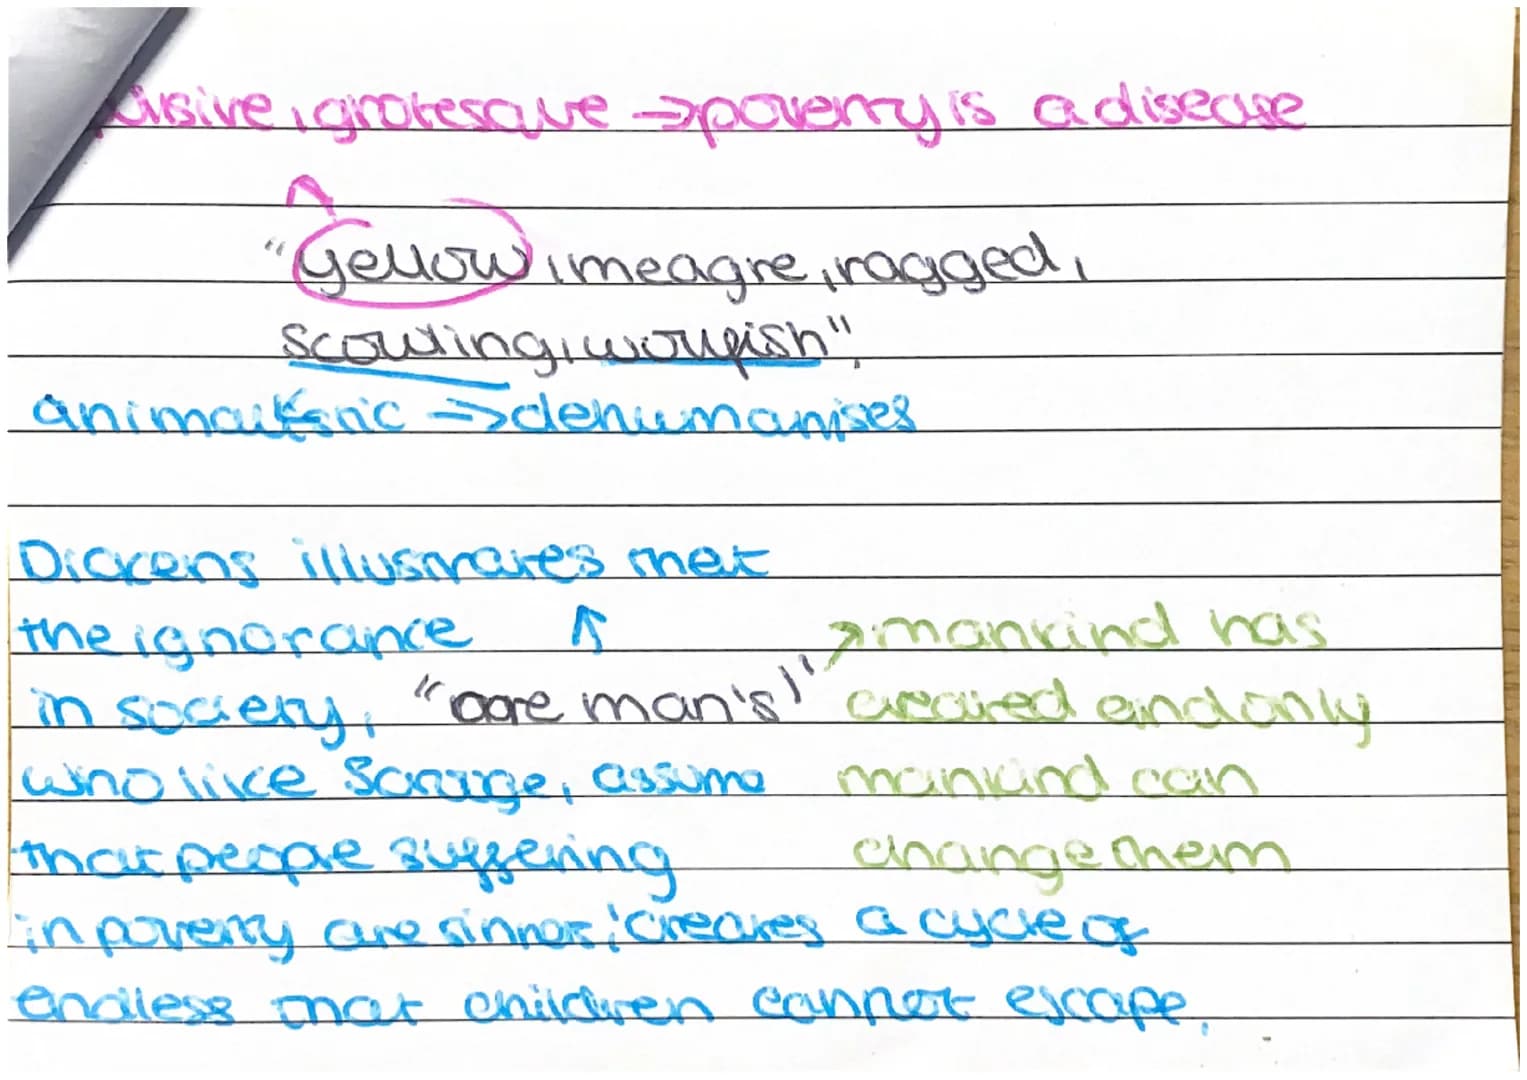 grotesque → poverty is a disease
"yellow, meagre, ragged,
scowling, wolfish".
→ dehumanises
Dickens illustrates that
the ignorance ↑
in society, "are man's"
who like Scrooge, assume
that people suffering
in poverty are : creates a cycle of
endless that children cannot escape.
→ mankind has
created and only
mankind can
change them